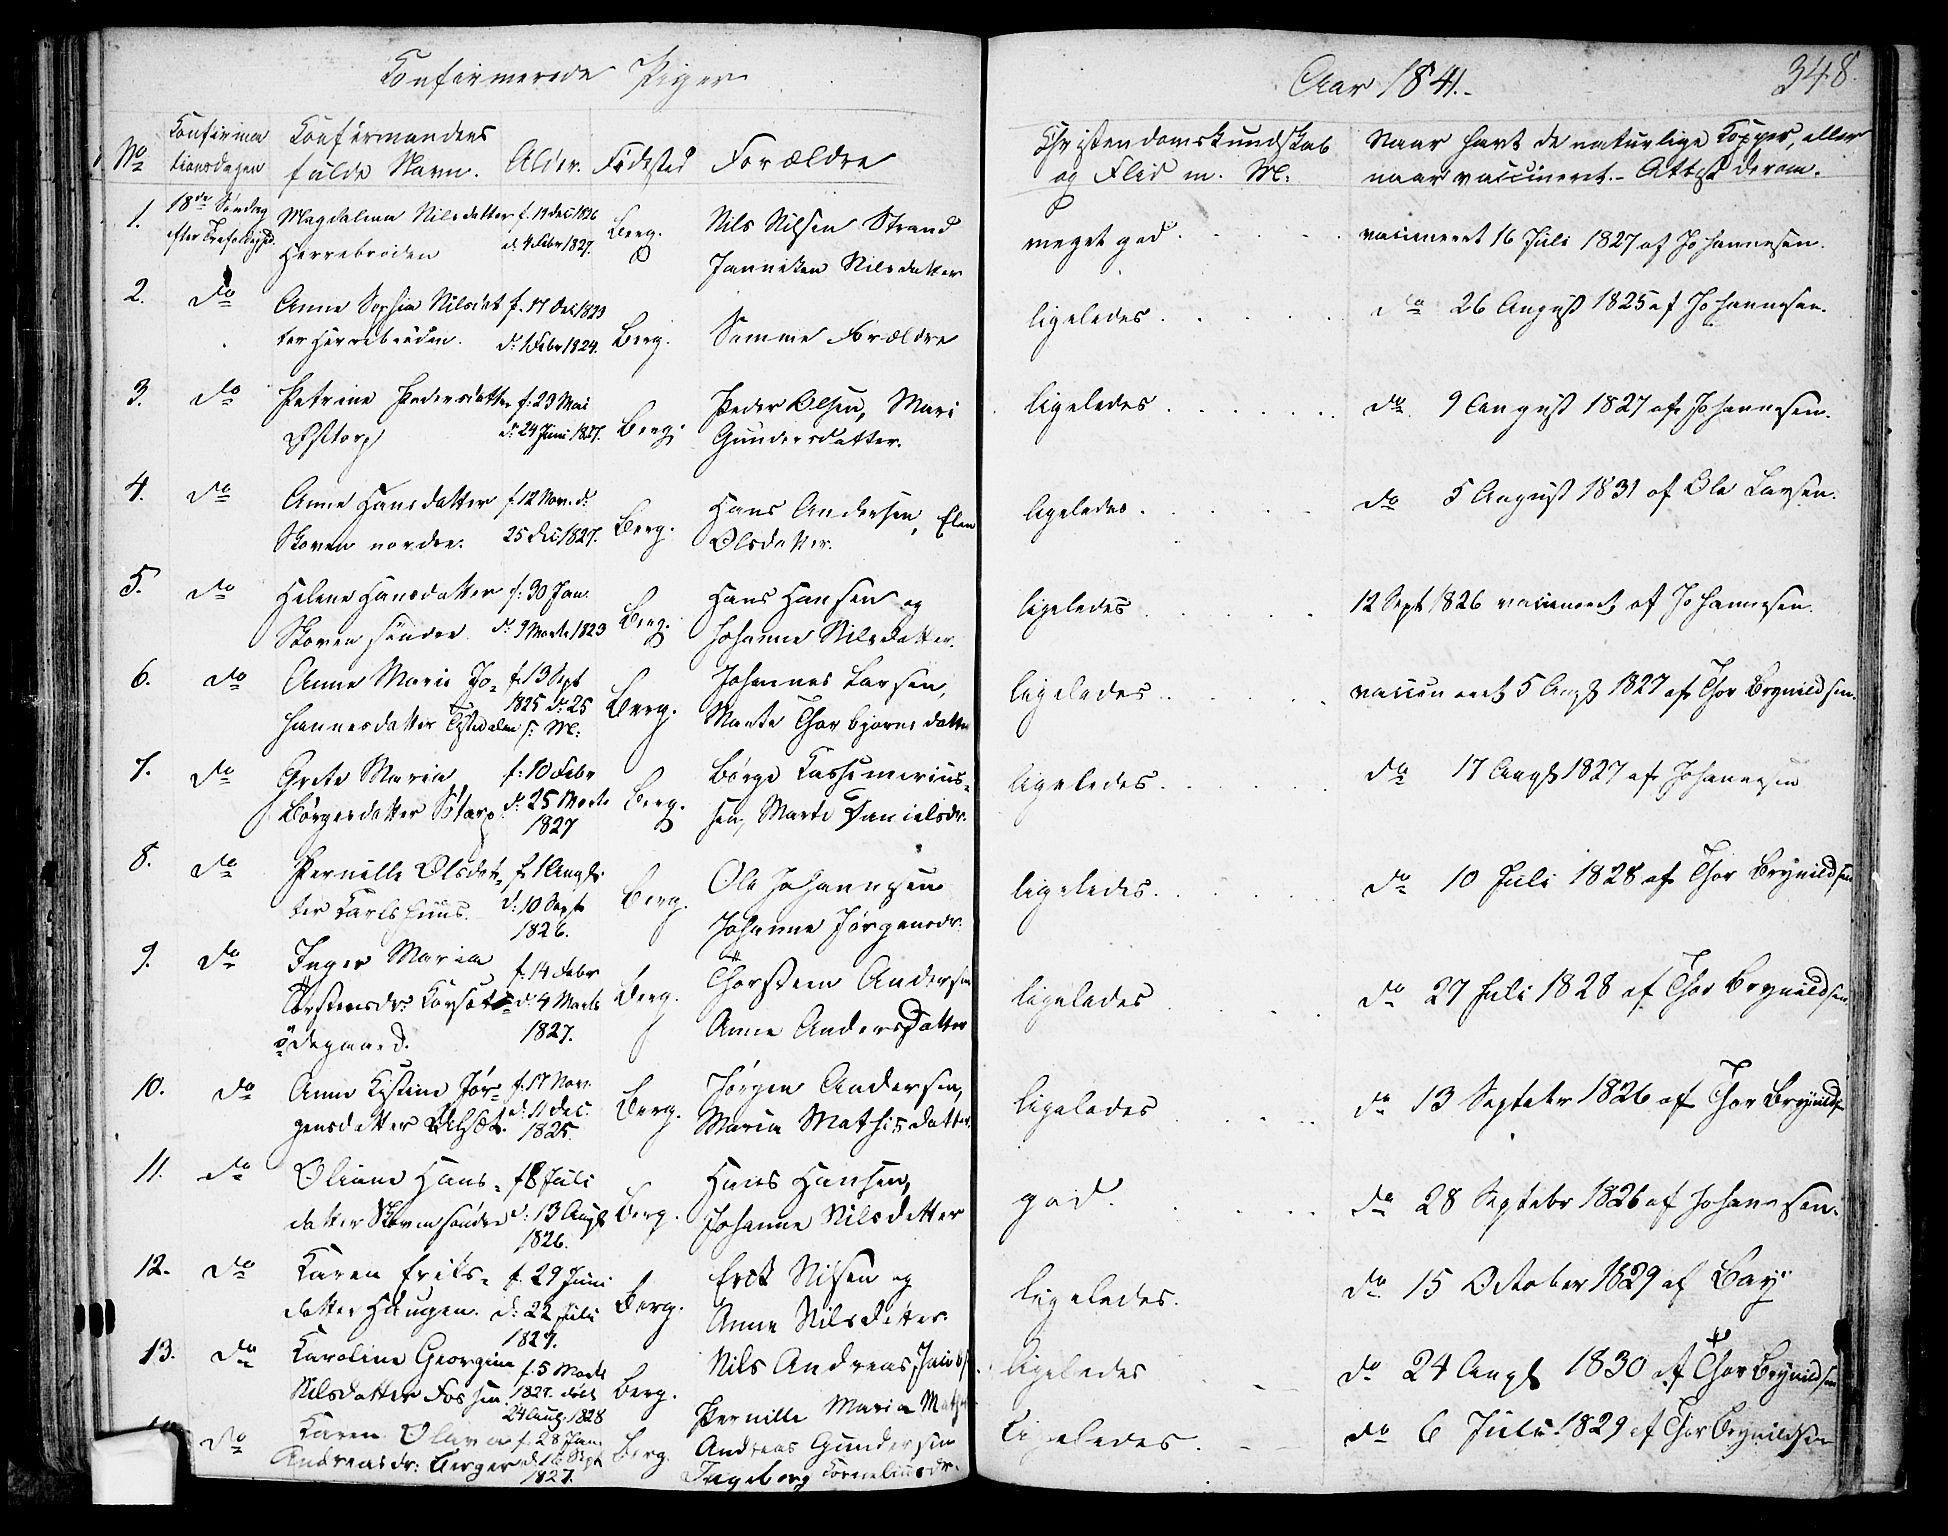 Confirmerede Piger
Aar 1841.
348.
No
Confirma
tionsdagen
Confirmandens
fulde Navn.
Alder.
Fødested
Forældre
Christendomskundskab
og Flid m. M:
Naar havt de naturlige Kopper, eller
naar vaccineret. - Attest derom.
1.
18de Søndag
efter Trefoldighed.
Magdalena Nilsdatter
Herrebrøden
f. 19 dec 1826
d. 4 Febr 1827.
Berg.
Nils Nilsen Strand
Janniken Nilsdatter
meget god
vaccineret 16 Juli 1827 af Johannesen.
2.
do
Anne Sophia Nilsdat
ter Herrebrøden.
f. 17 Dec 1823
d: 1 Febr 1824.
Berg.
Samme Forældre
ligeledes
do 26 August 1825 af Johannesen.
3.
do
Petrine Pedersdatter
Østtorp
f: 23 Mai
d: 24 Juni 1827.
Berg.
Peder Olsen, Mari
Gundersdatter.
ligeledes
do 9 August 1827 af Johannesen.
4.
do
Anne Hansdatter
Skoven nordre.
f 12 Nov. d:
25 dec 1827.
Berg.
Hans Andersen, Elen
Olsdatter.
ligeledes
do 5 August 1831 af Ole Larsen.
5.
do
Helene Hansdatter
Skoven søndre
f: 30 Jan.
d: 9 Marts 1823
Berg.
Hans Hansen og
Johanne Nilsdatter.
ligeledes
12 Sept 1826 vaccineret af Johannesen.
6.
do
Anne Marie Jo-
hannesdatter Tistedalen
f: 13 Sept
1825 d: 25
s: M:
Berg.
Johannes Larsen,
Marte Thorbjørnsdatter
ligeledes
vaccineret 5 Augst 1827 af Thor Brynildsen.
7.
do
Grete Maria
Børgesdatter SØtorp
f: 10 Febr
d: 25 Marts
1827
Berg.
Børge Cassemerius-
sen, Marte Danielsdr.
ligeledes
do 17 Augst 1827 af Johannesen
8.
do
Pernille Olsdat-
ter Karlshuus.
f. 1 Augst
d: 10 Sept
1826.
Berg.
Ole Johannesen
Johanne Jørgensdr.
ligeledes
do 10 Juli 1828 af Thor Brynildsen
9.
do
Inger Maria
Thorstensdr. Korsæt-
ødegaard.
f. 14 Febr
d: 4 Marts
1827.
Berg.
Thorsten Andersen
Anne Andersdatter
ligeledes
do 27 Juli 1828 af Thor Brynildsen
10.
do
Anne Kistine Jør-
gensdatter
f: 17 Nov.
d: 11 dec.
1825.
Berg.
Jørgen Andersen,
Maria Mathisdatter.
ligeledes
do 13 Septebr 1826 af Thor Brynilds
11.
do
Oliane Hans-
datter Skoven søndre
f 8 Juli
d: 13 Augst
1826.
Berg.
Hans Hansen,
Johanne Nilsdatter
god.
do 28 Septebr 1826 af Johannesen.
12.
do
Karen Eriks-
datter Haugen.
f. 29 Juni
d: 22 Juli
1827.
Berg.
Erik Nilsen og
Anne Nilsdatter
ligeledes.
do 15 October 1829 af Bay
13.
do
Karoline Georgine
Nilsdatter Fossen.
f. 5 Marts
1827. døbt
24 Aug. 1828
Berg.
Nils Andreas Jacobs.
Pernille Maria Mats
ligeledes
do 24 Augst 1830 af Thor Brynildsen
do
Karen Olava
Andreasdr: Berger
f. 28 Jan.
d. 16 Sept
1827.
Berg.
Andreas Gundersen
Ingeborg Corneliusdr.
Ligeledes.
do 6 Juli 1829 af Thor Brynildsen